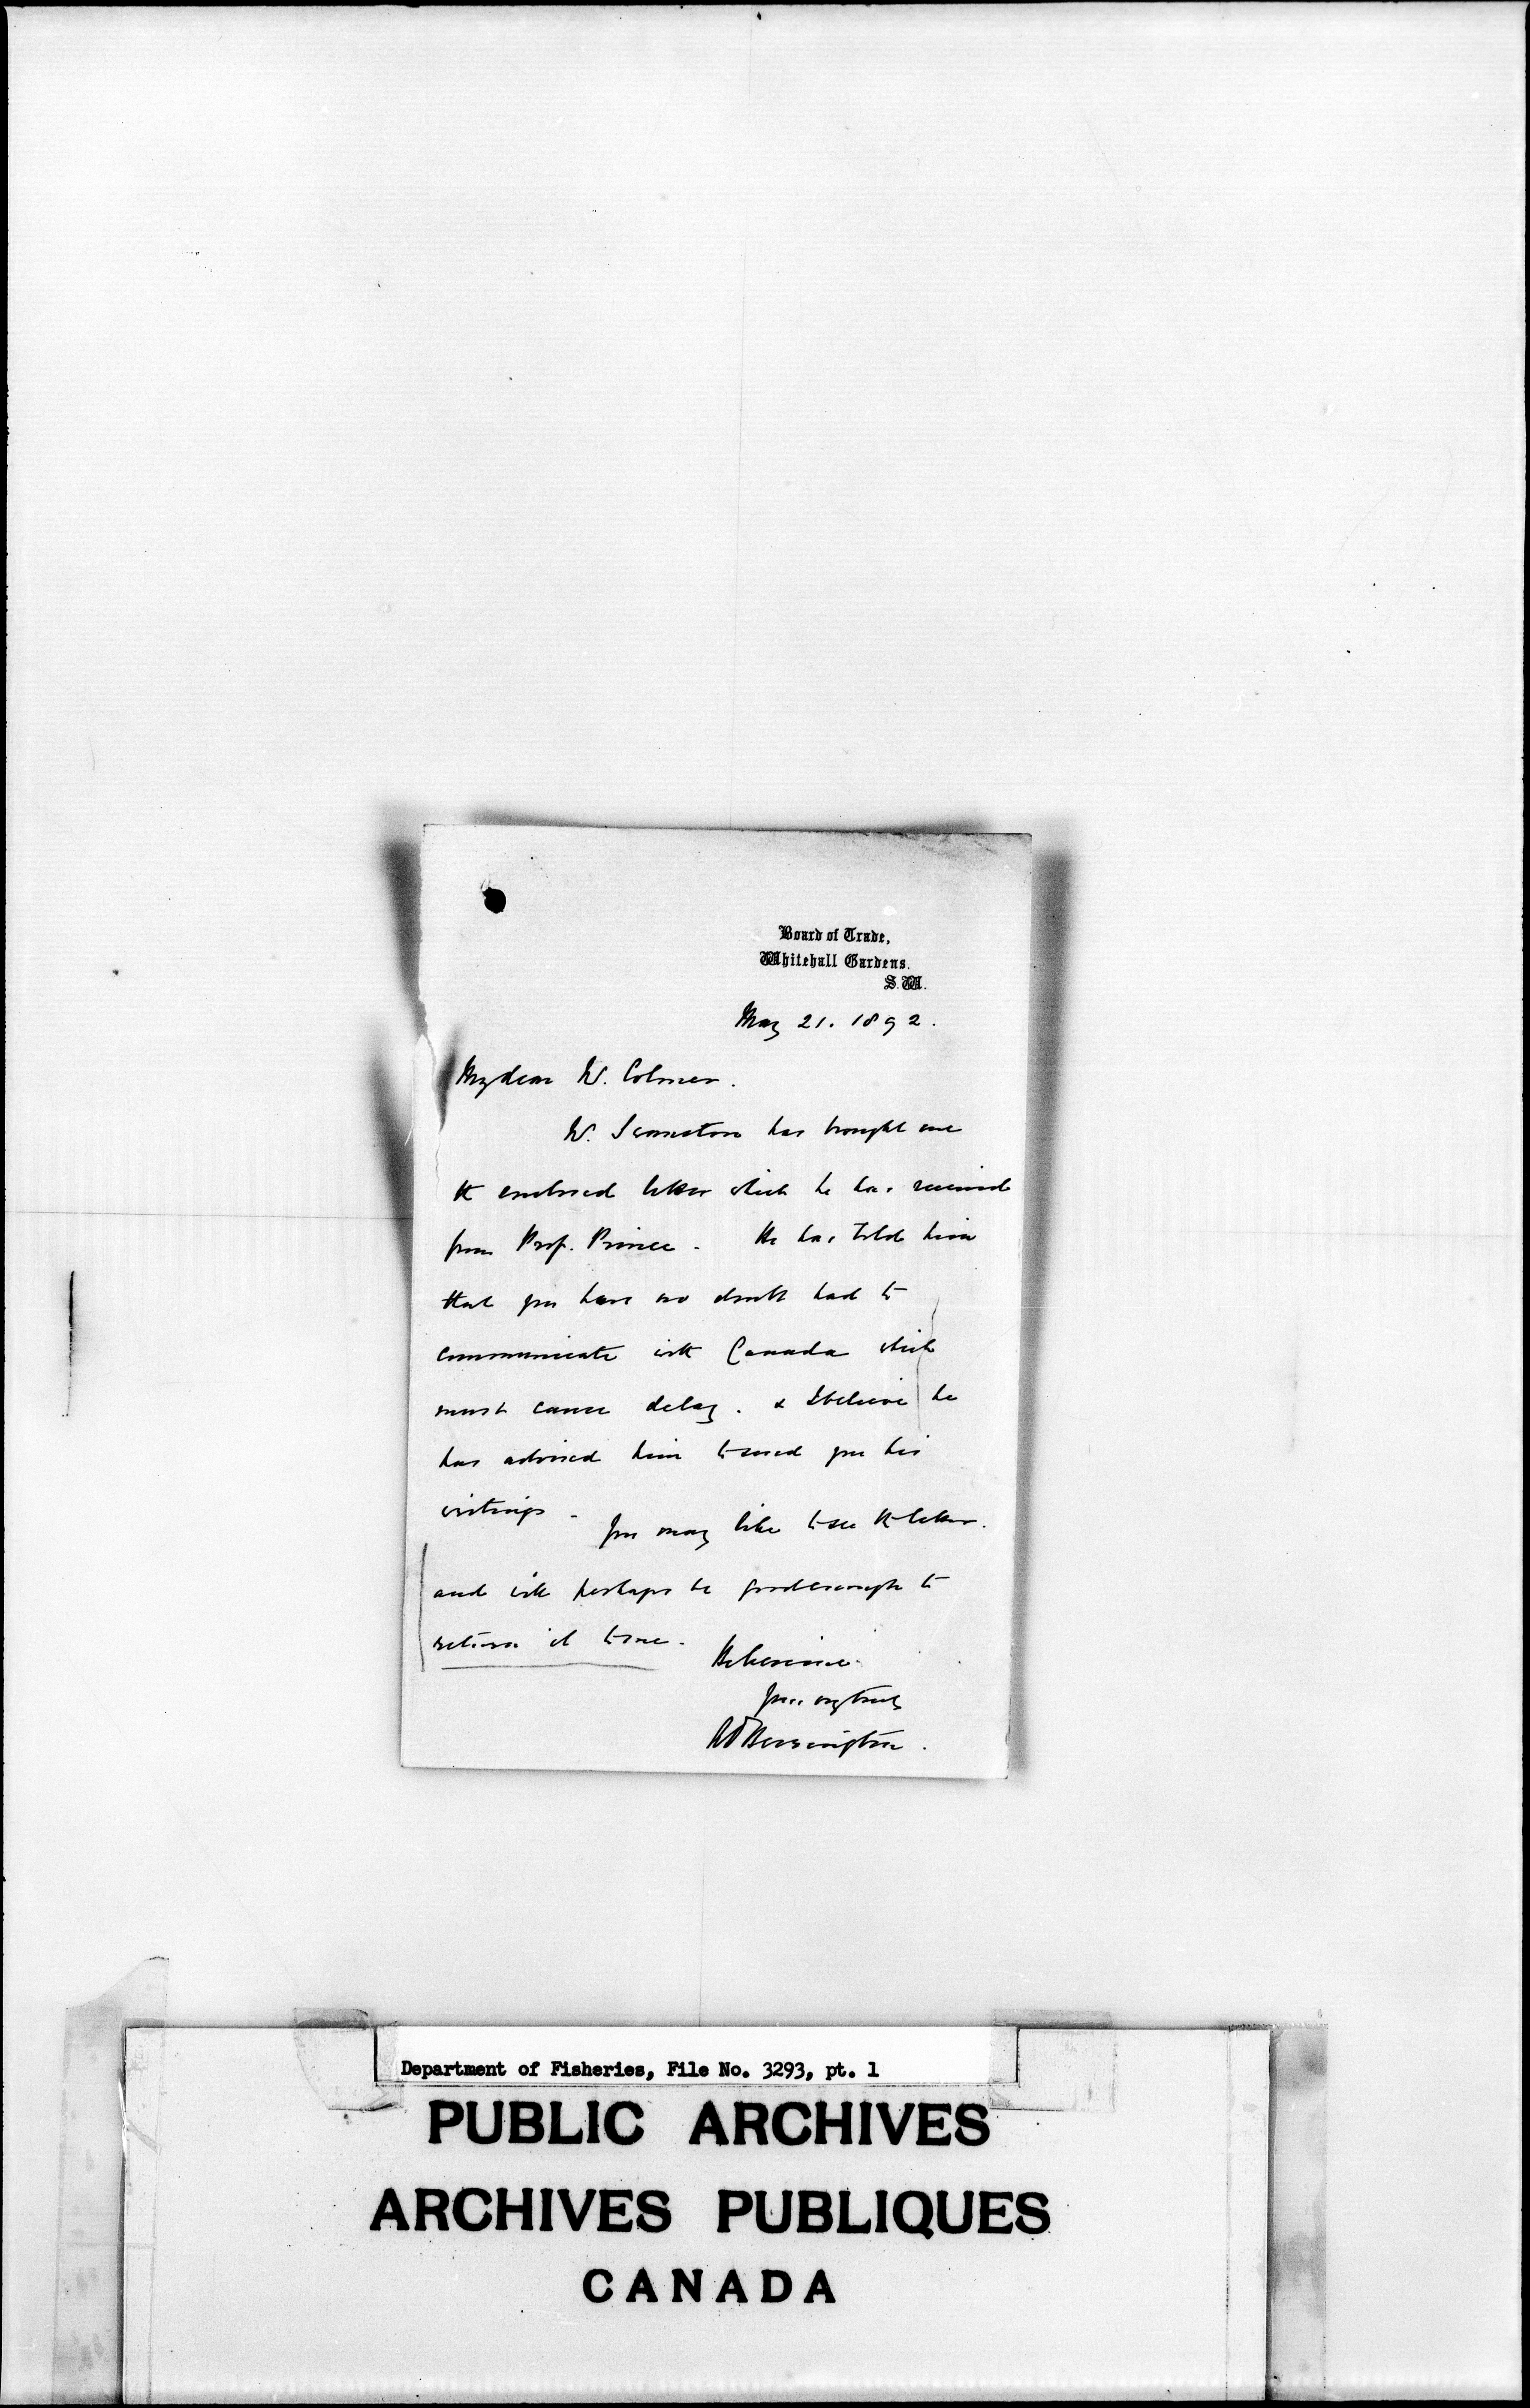 Board of Trade,
Whitehall Gardens.
S.W.
May 21. 1892.
My dear Mr. Colmer.
Mr. has brought me
the enclosed letter which he has received
from Prof. Prince. He has told him
that you have no doubt had to
communicate with Canada which
must cause delay. & I believe he
has advised him to send you his
writings. You may like to see the letter.
and will perhaps be good enough to
return it to me.
Believe me
Yours very truly
Berrington.
Department of Fisheries, File No. 3293, pt. 1
PUBLIC ARCHIVES
ARCHIVES PUBLIQUES
CANADA